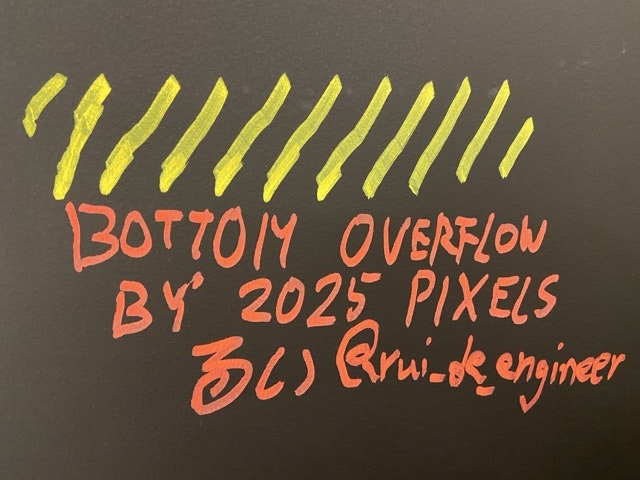 BOTTOM OVERFLOW
BY 2025 PIXELS
るい @rui_de_engineer